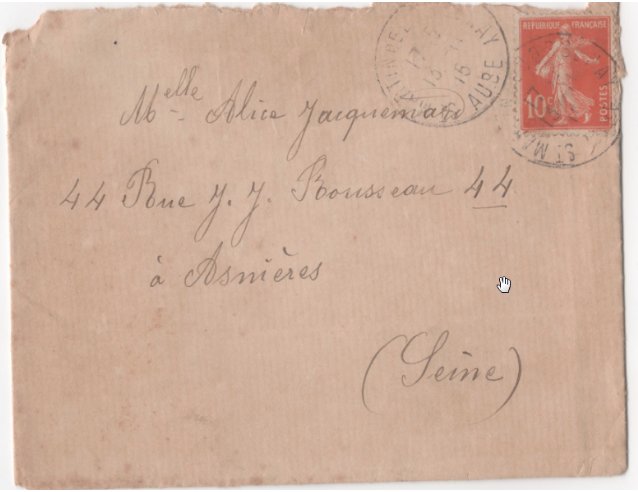 REPUBLIQUE FRANÇAISE
10c
POSTES
AUBE
ST MA
Melle Alice Jacquemard
44 Rue J. J. Rousseau 44
à Asnières
(Seine)